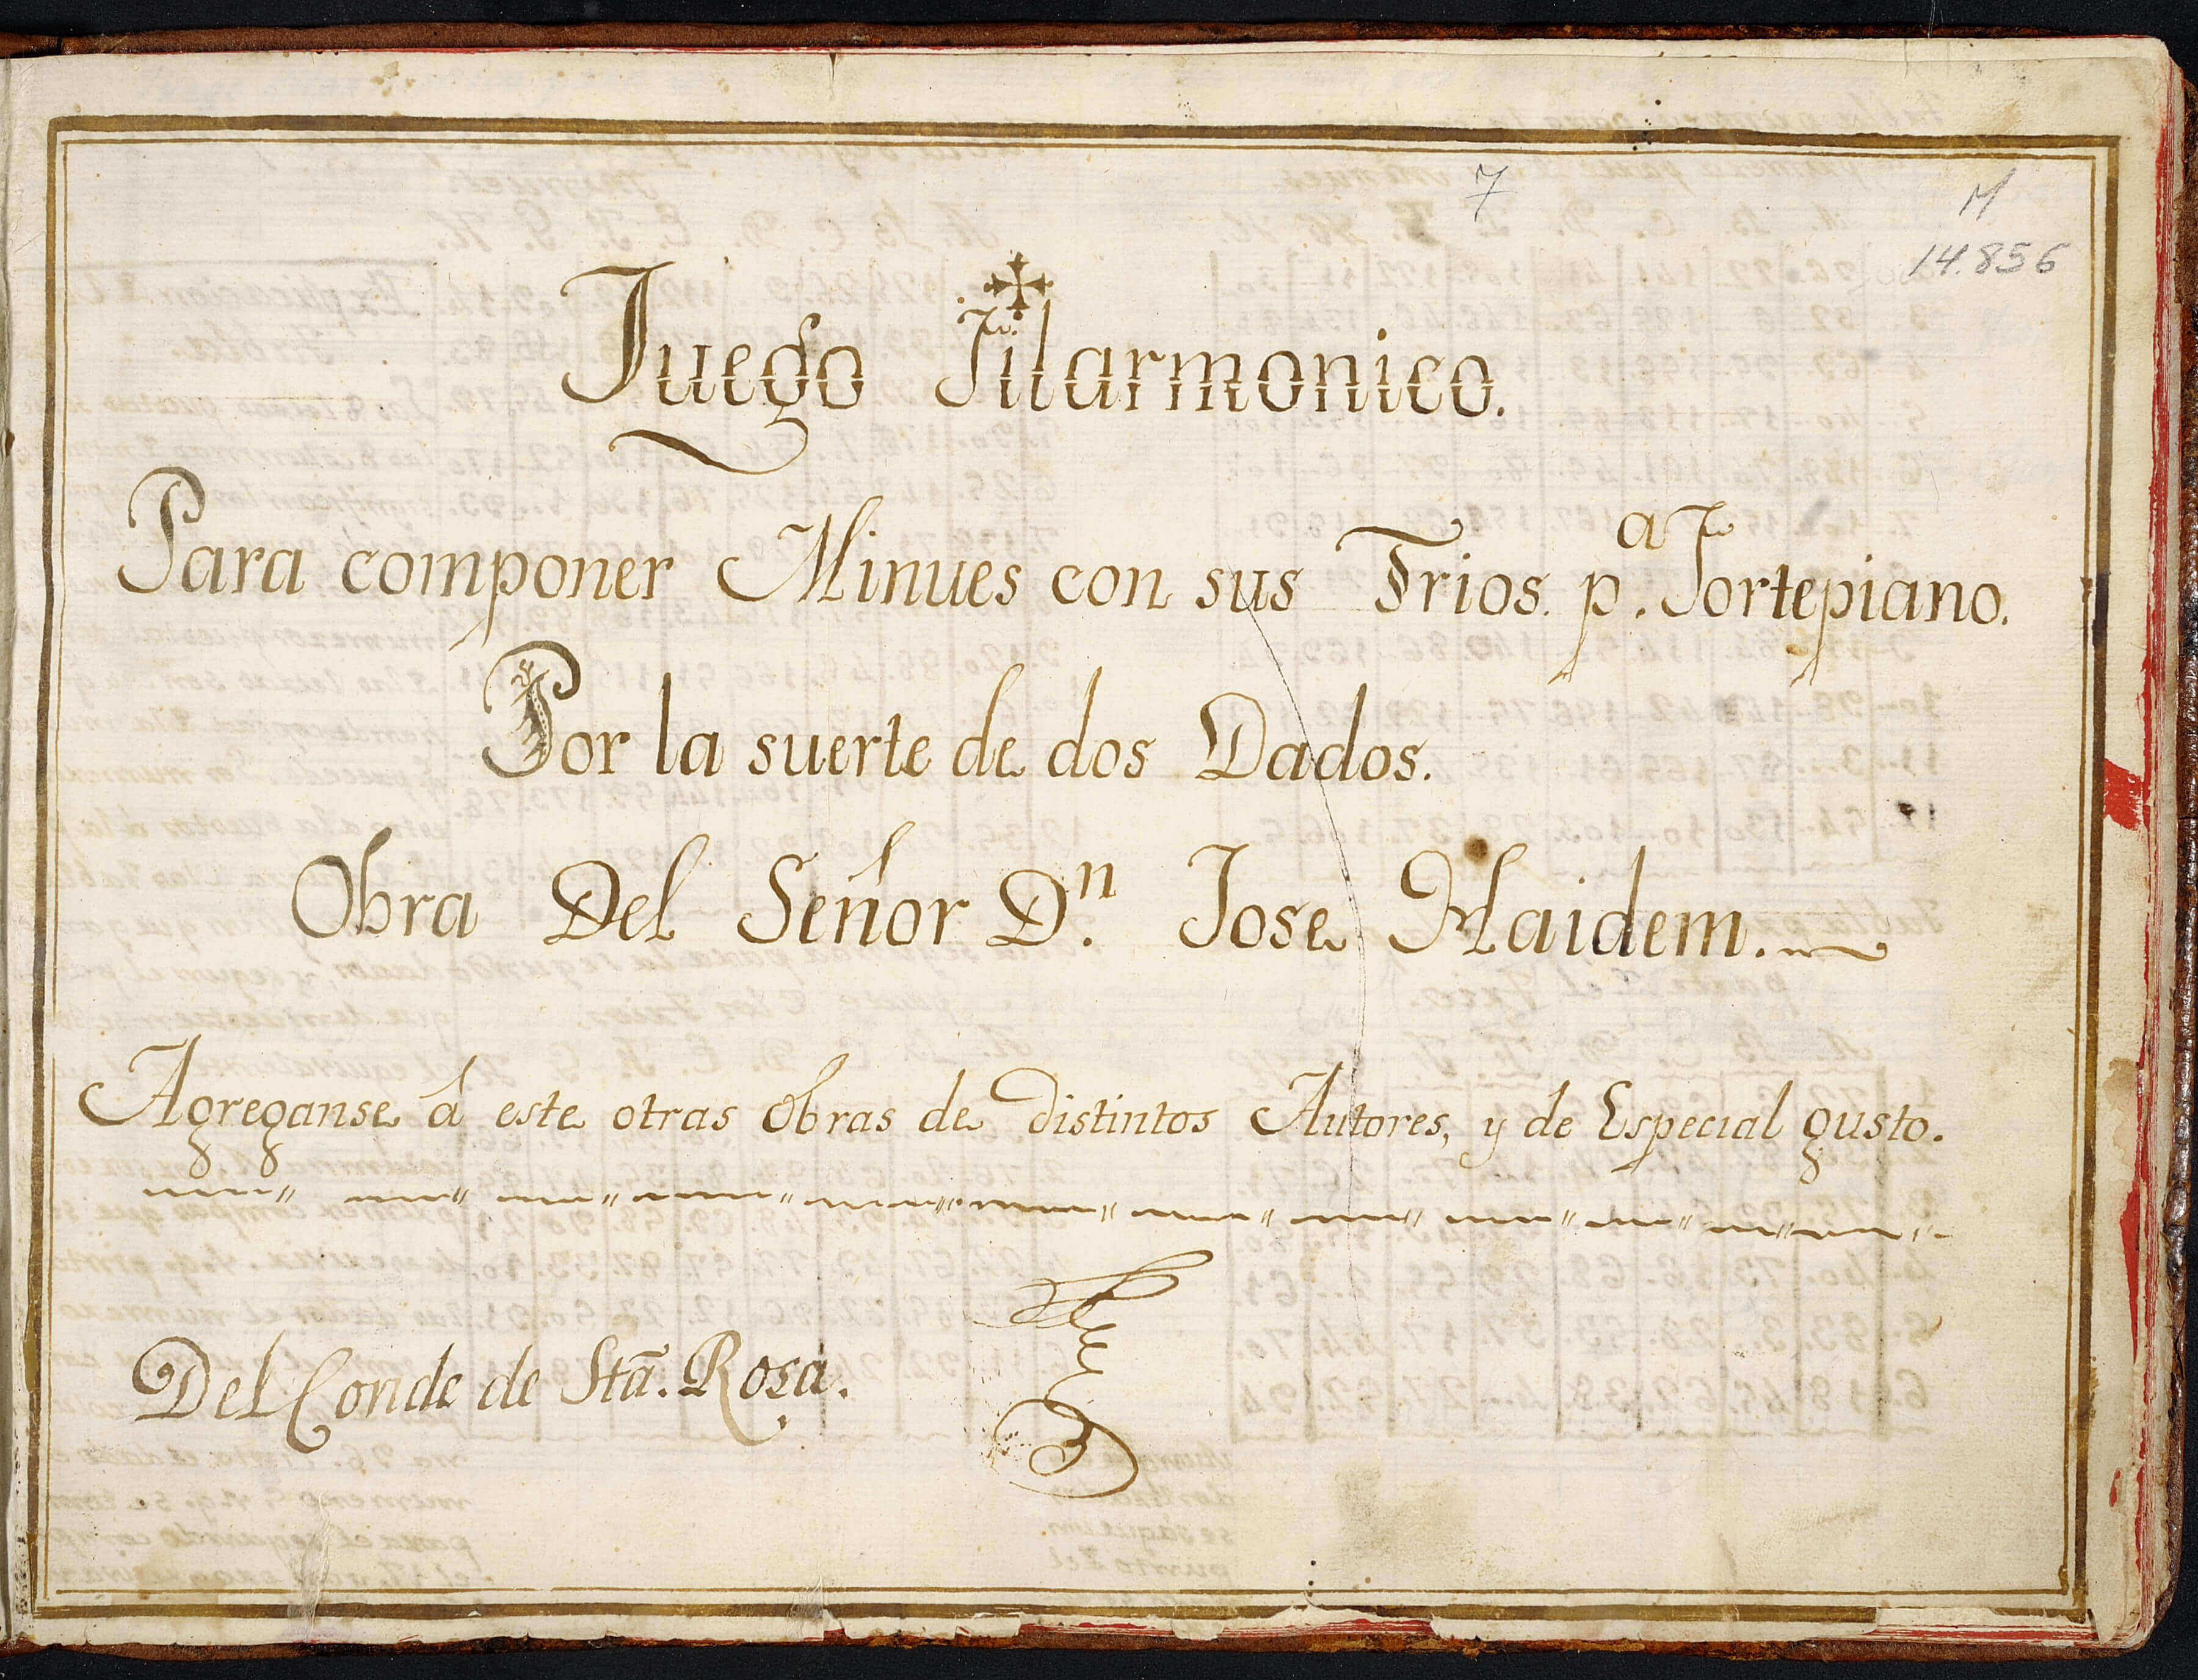 7
M
14.856
Juego Filarmonico.
Para componer Minues con sus Trios. pª. Fortepiano.
Por la suerte de dos Dados.
Obra Del Señor Dⁿ. Jose Haidem.
Agreganse á este otras obras de distintos Autores, y de Especial gusto.
Del Conde de Stā. Rosa.